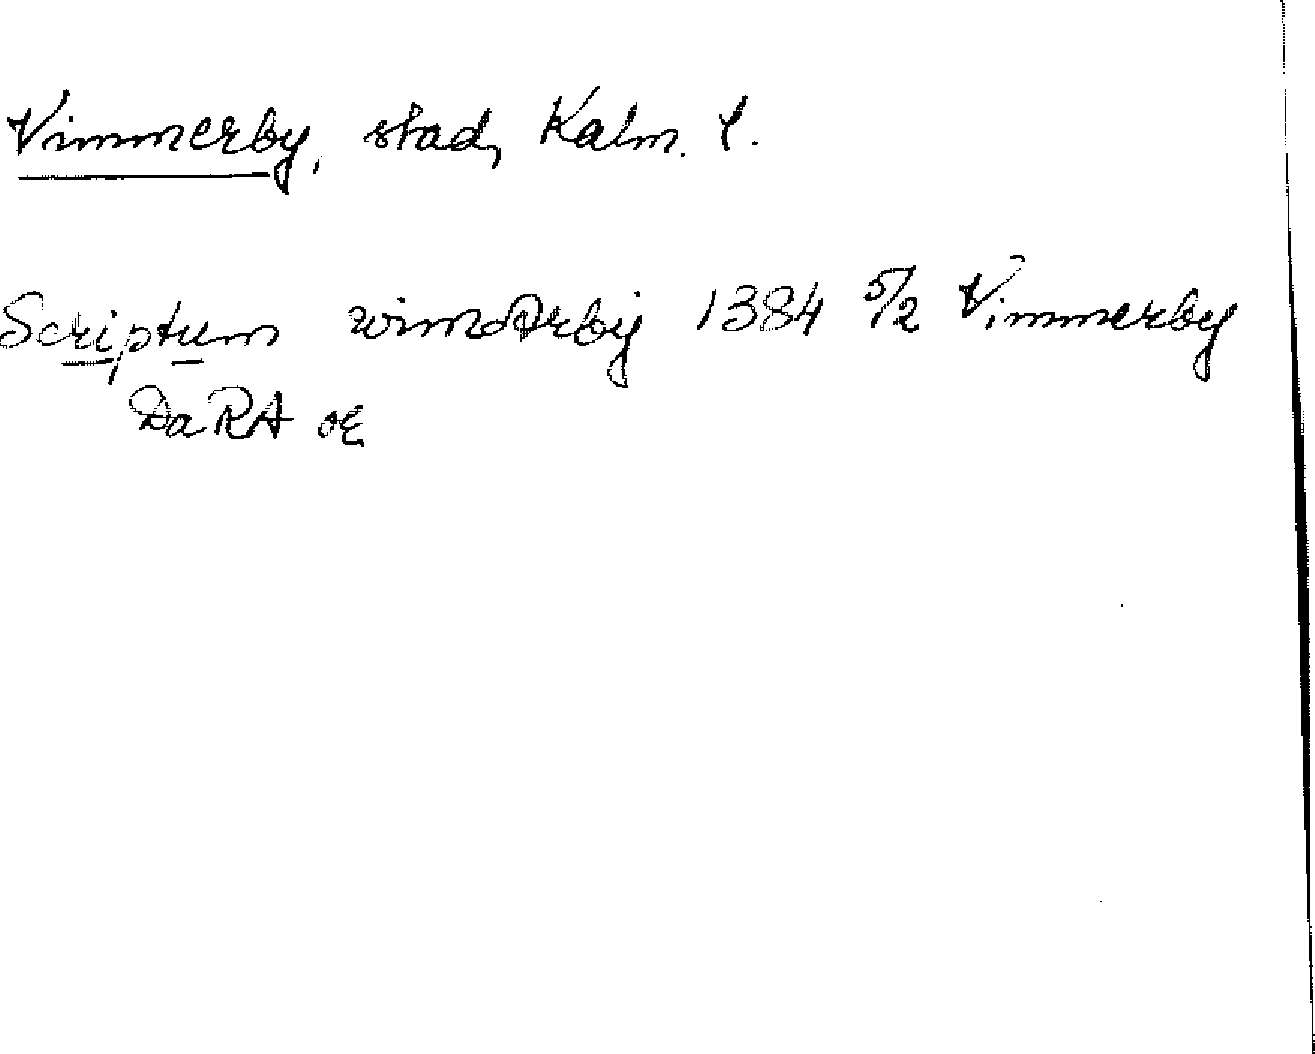 Vimmerby, stad, Kalm. l.
Scriptum wimdærbij 1384 5/2 Vimmerby
DaRA or